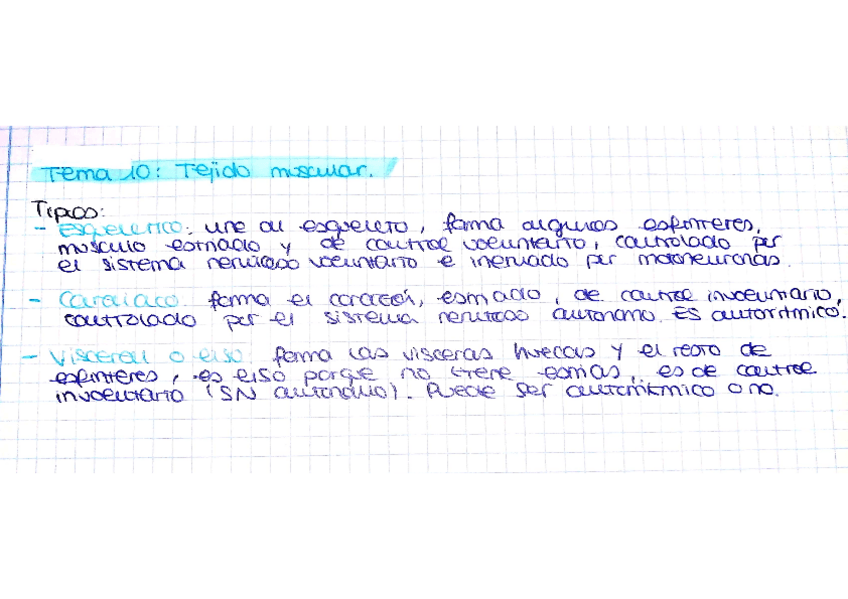 Tema 10: Tejido muscular.
Tipos:
- Esquelético: une al esqueleto, forma algunos esfínteres,
músculo estriado y de control voluntario, controlado por
el sistema nervioso voluntario e inervado por motoneuronas.
- Cardiaco: forma el corazón, estriado, de control involuntario,
controlado por el sistema nervioso autónomo. Es autorítmico.
- Visceral o liso: forma las vísceras huecas y el resto de
esfínteres, es liso porque no tiene estrías, es de control
involuntario (SN autónomo). Puede ser autorítmico o no.